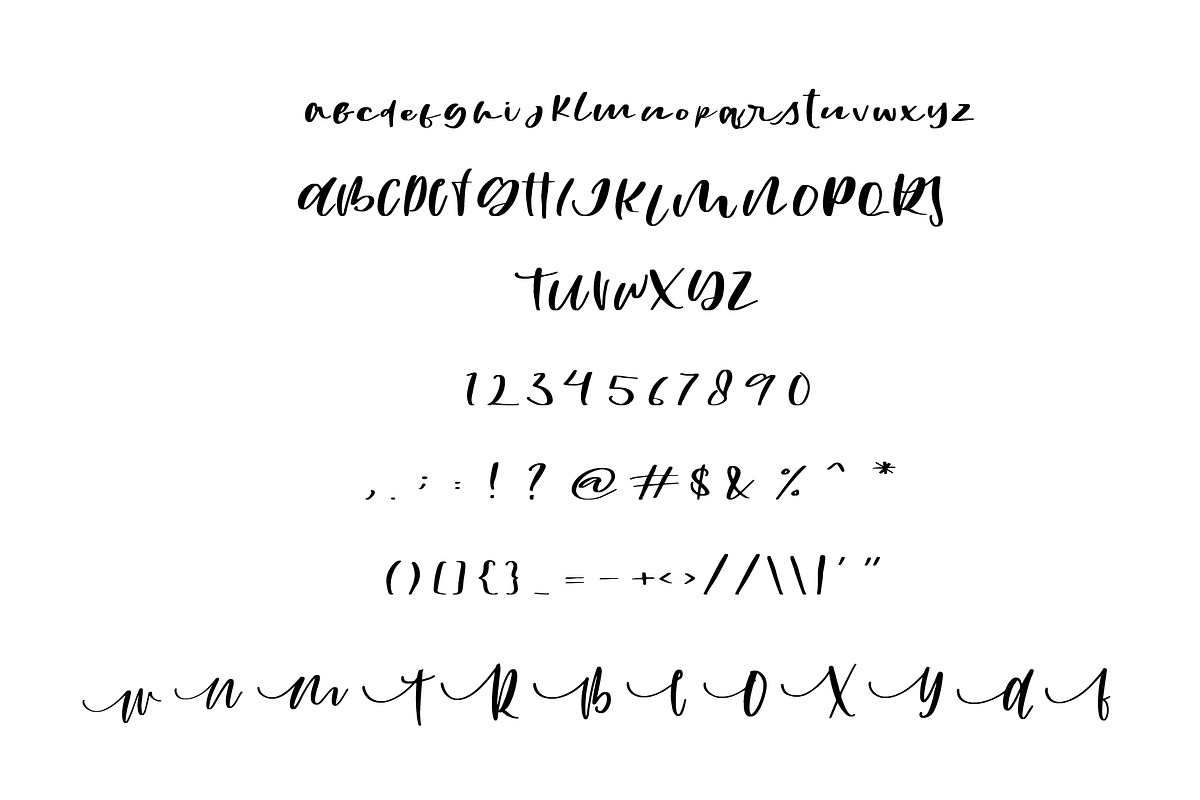 abcdefghijklmnopqrstuvwxyz
ABCDEFGHIJKLMNOPQRS
TUVWXYZ
1234567890
, . ; : ! ? @ # $ & % ^ *
( ) [ ] { } _ = - + < > / / \ \ | ' "
w n m t R B l O X y a f